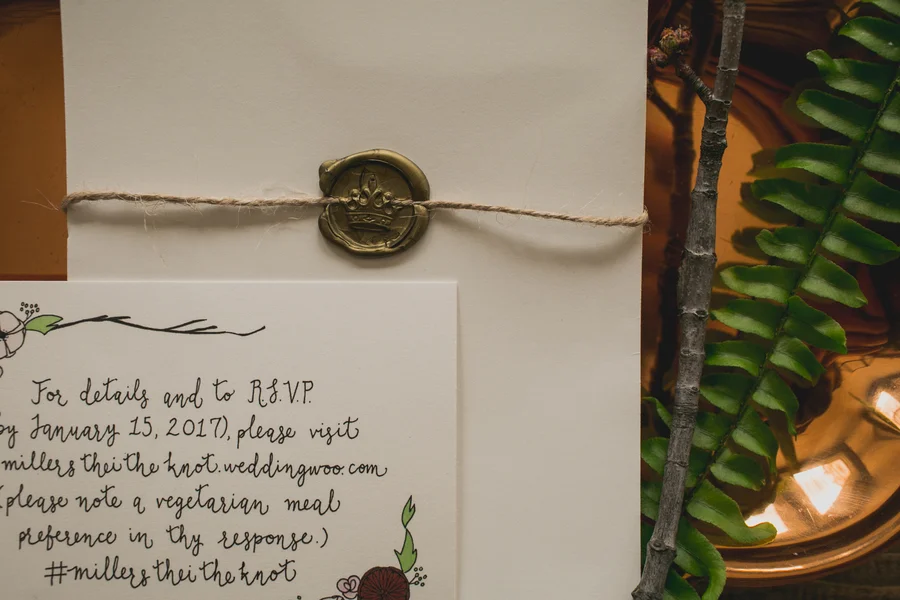 For details and to R.S.V.P.
by January 15, 2017), please visit
millerstheitheknot.weddingwoo.com
(please note a vegetarian meal
preference in thy response.)
#millerstheitheknot